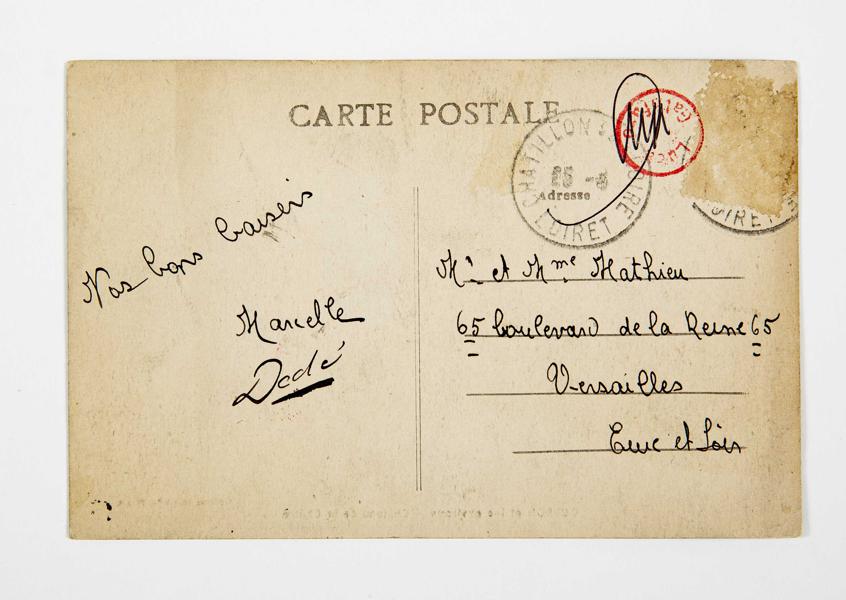 CARTE POSTALE
CHATILLON S LOIRE
25 -8
LOIRET
Adresse
OIRE
Nos bons baisers
Marcelle
Dedé
Mr et Mme Mathieu
65 boulevard de la Reine 65
Versailles
et